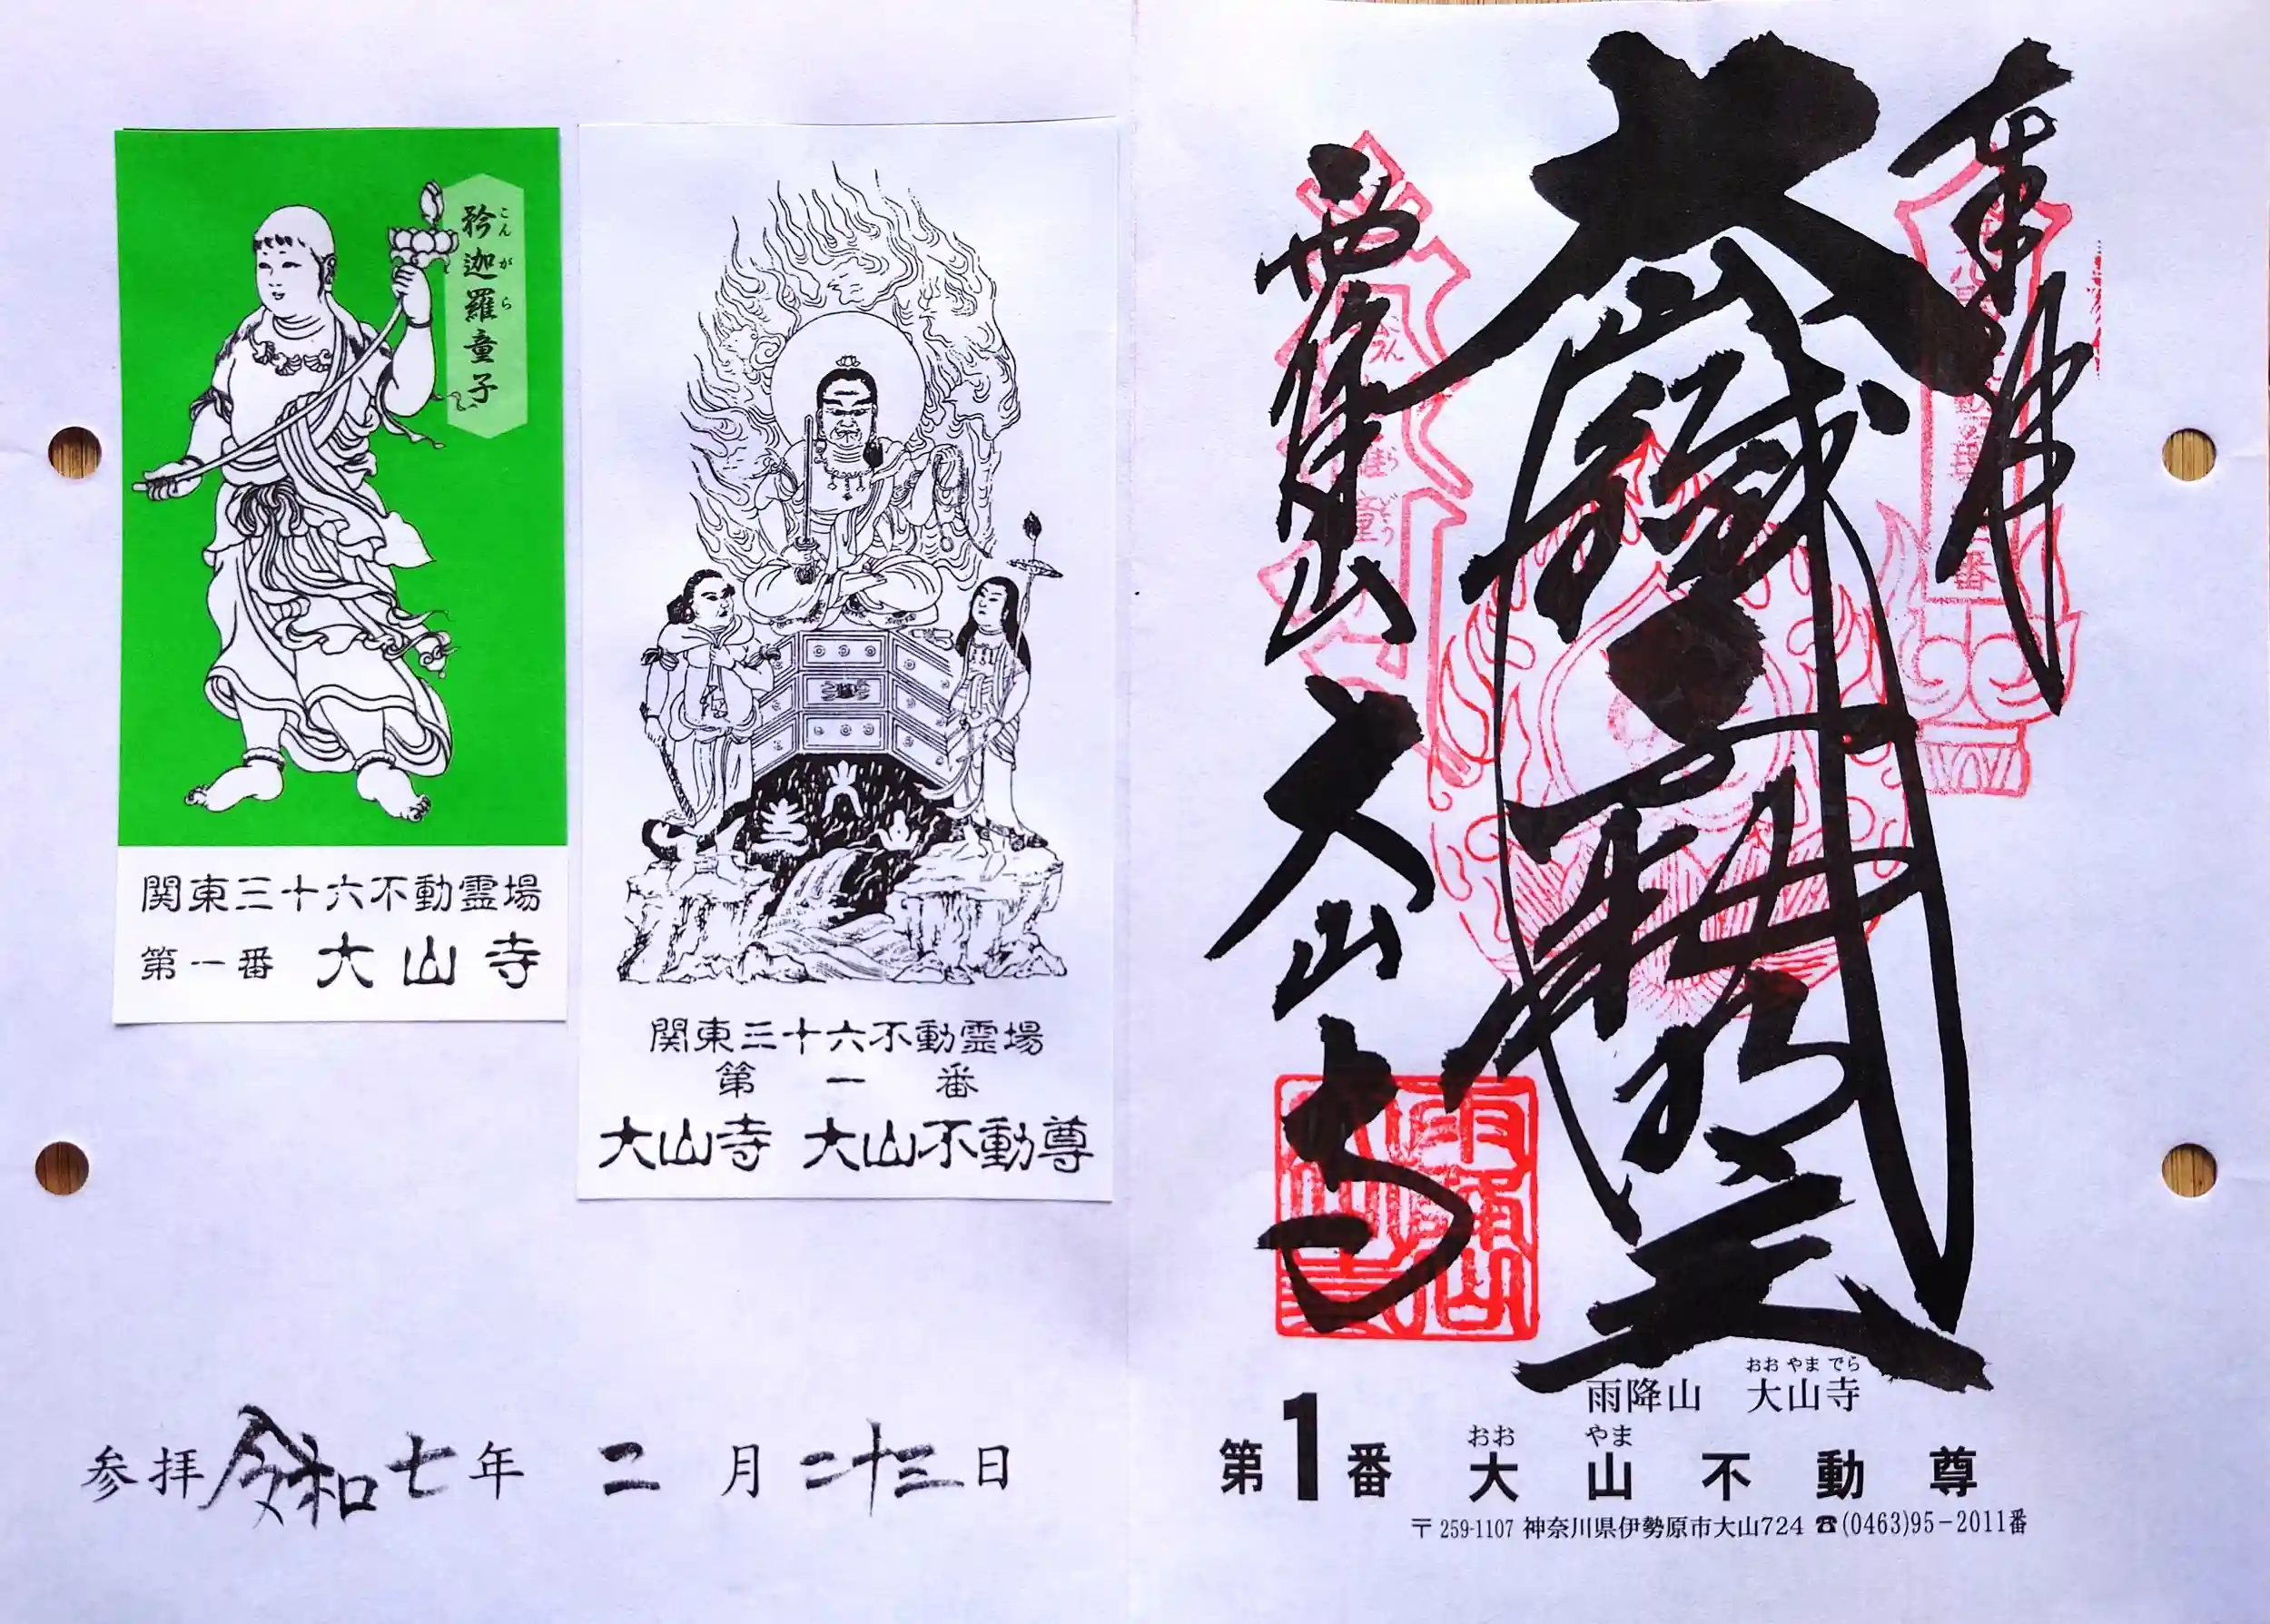 奉拝
大山
鐵不動明王
雨降山
大山寺
雨降山　大山寺
おおやまでら
第1番 大山不動尊
おお やま
〒259-1107 神奈川県伊勢原市大山724 ☎(0463)95-2011番
関東三十六不動霊場
第一番
大山寺 大山不動尊
矜迦羅童子
こんがら
関東三十六不動霊場
第一番 大山寺
参拝 令和七年 二月二十三日